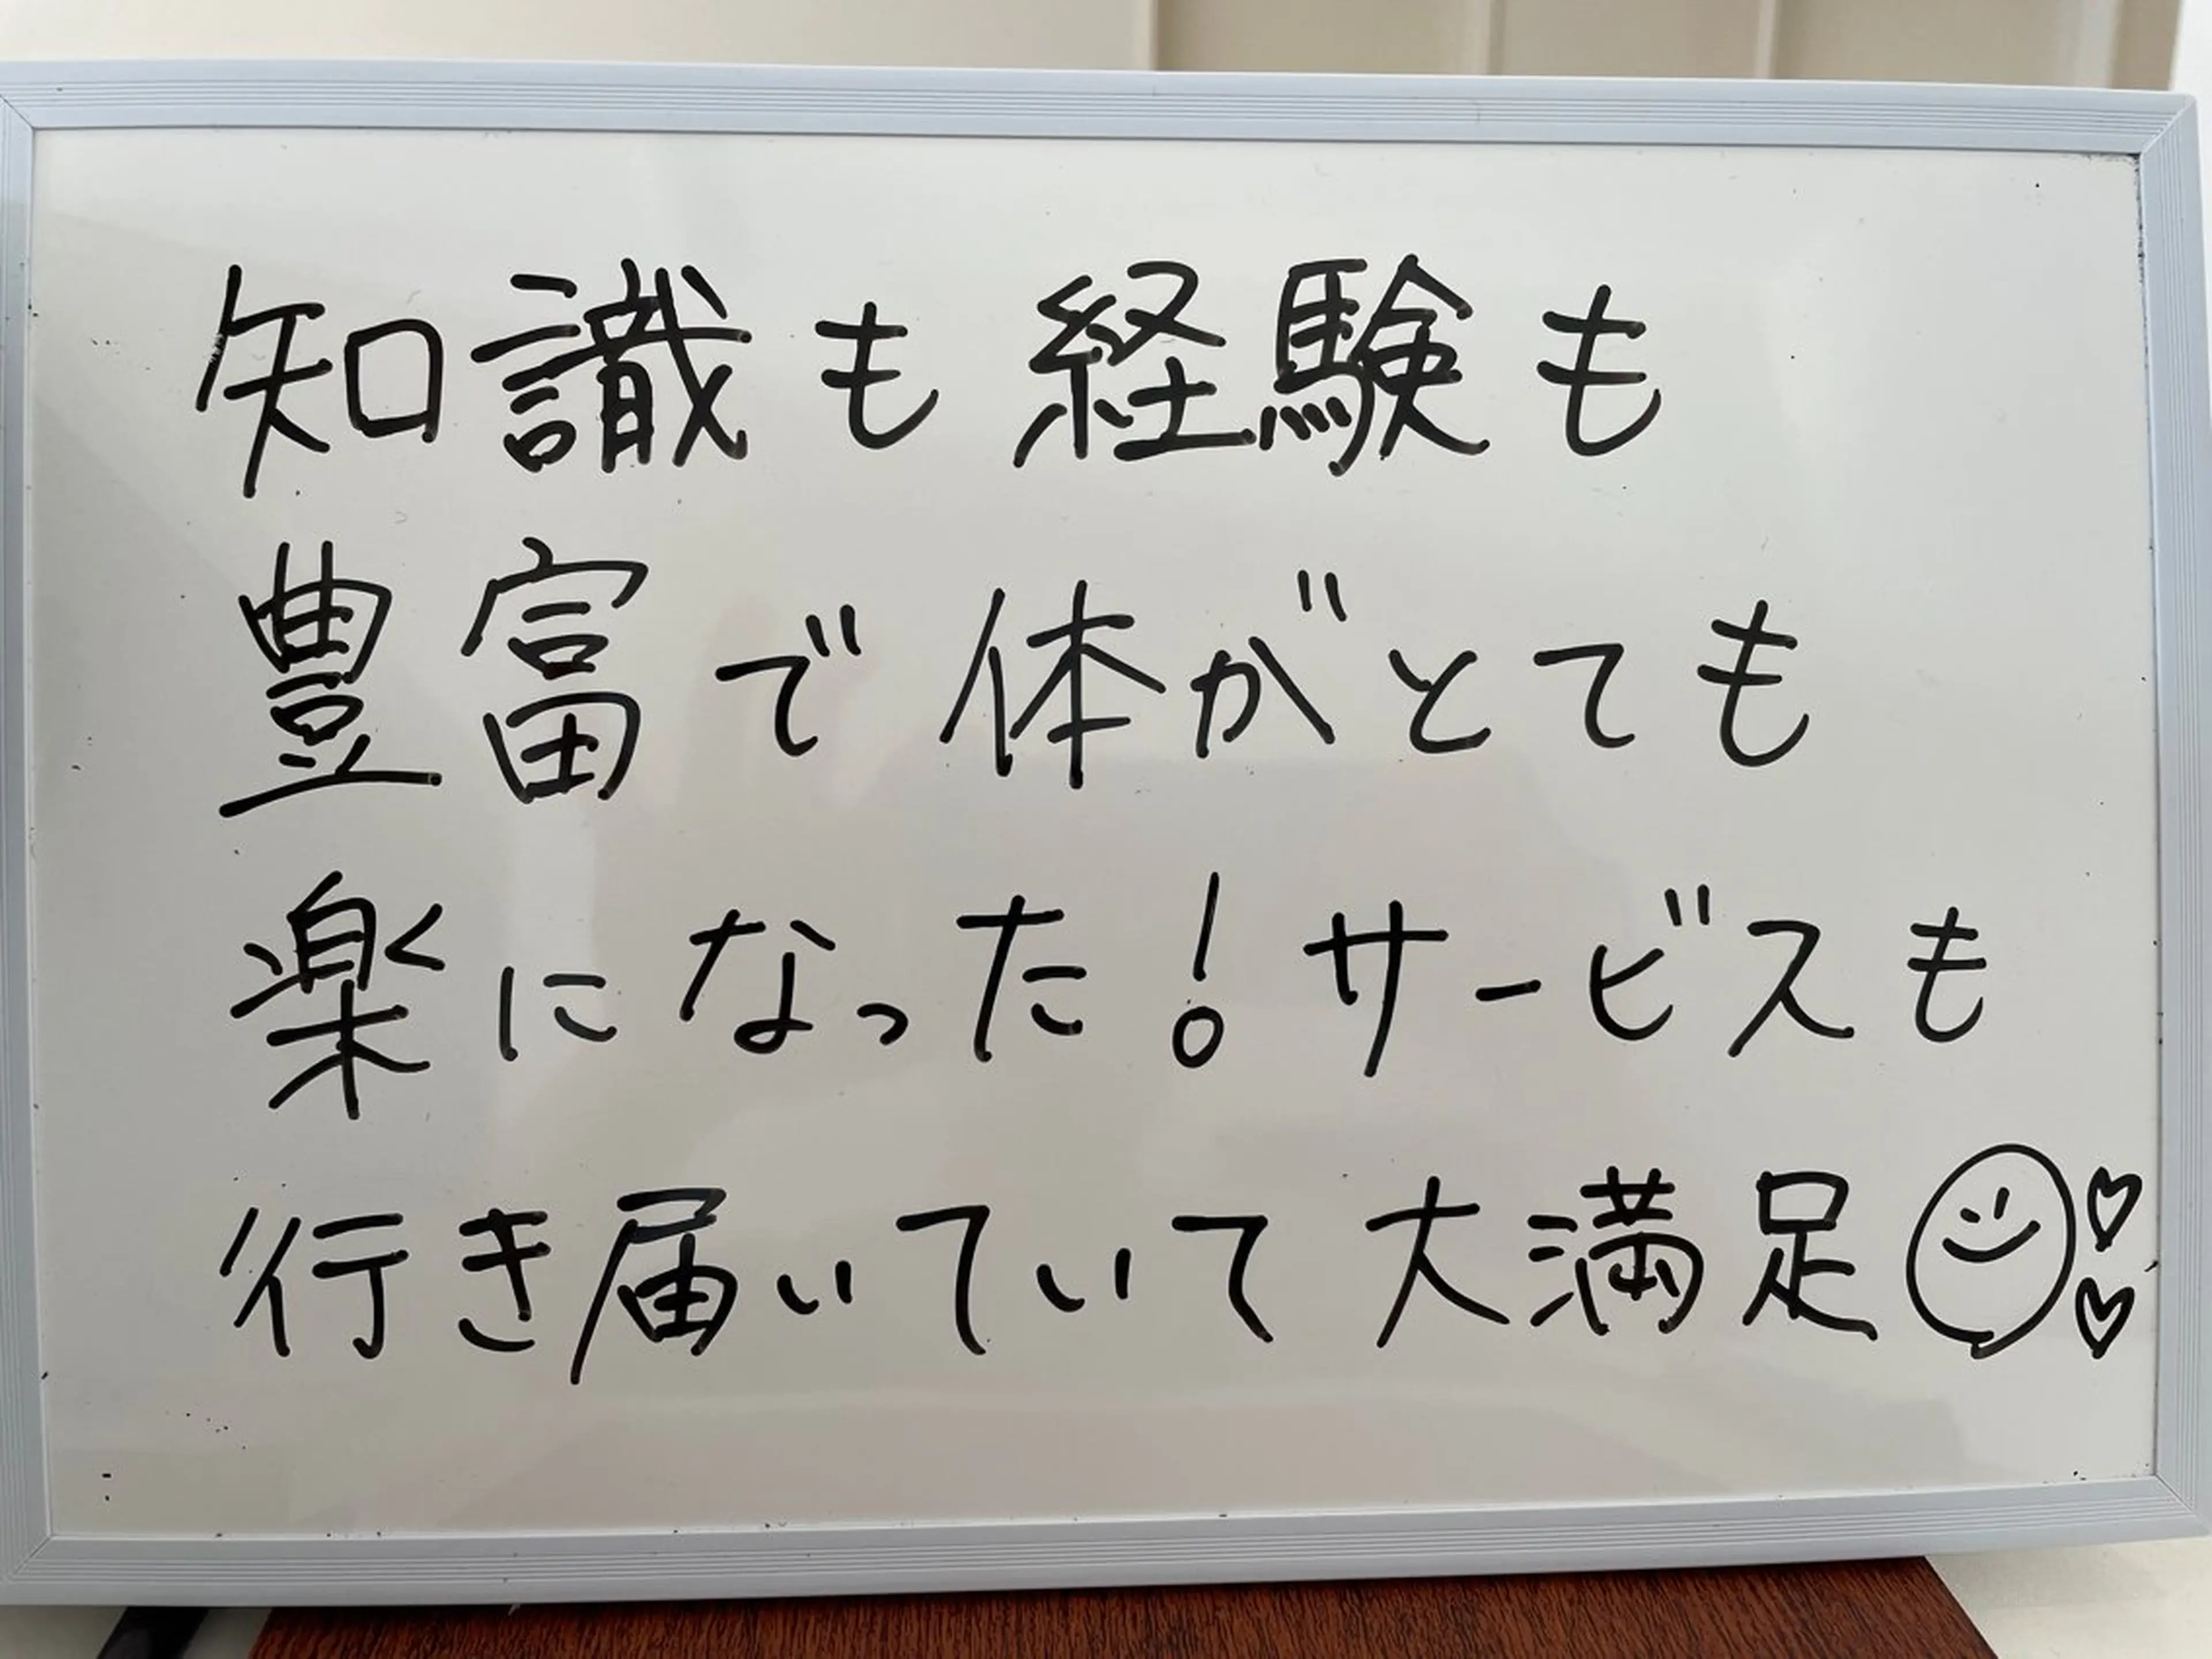 知識も経験も
豊富で体がとても
楽になった!サービスも
行き届いていて大満足